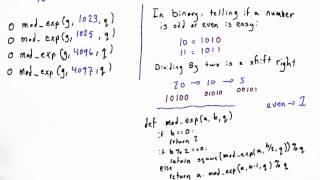 O mod_exp(g, 1023, q)
O mod_exp(g, 1025, q)
O mod_exp(g, 4096, q)
O mod_exp(g, 4097, q)
In binary, telling if a number
is odd of even is easy:
10 = 1010
11 = 1011
Dividing By two is a shift right
20 → 10 → 5
10100 01010 00101
even → 1
def mod_exp(a, b, q)
if b == 0:
return 1
if b % 2 == 0:
return square(mod_exp(a, b/2, q)) % q
else
return a · mod_exp(a, b-1, q) % q